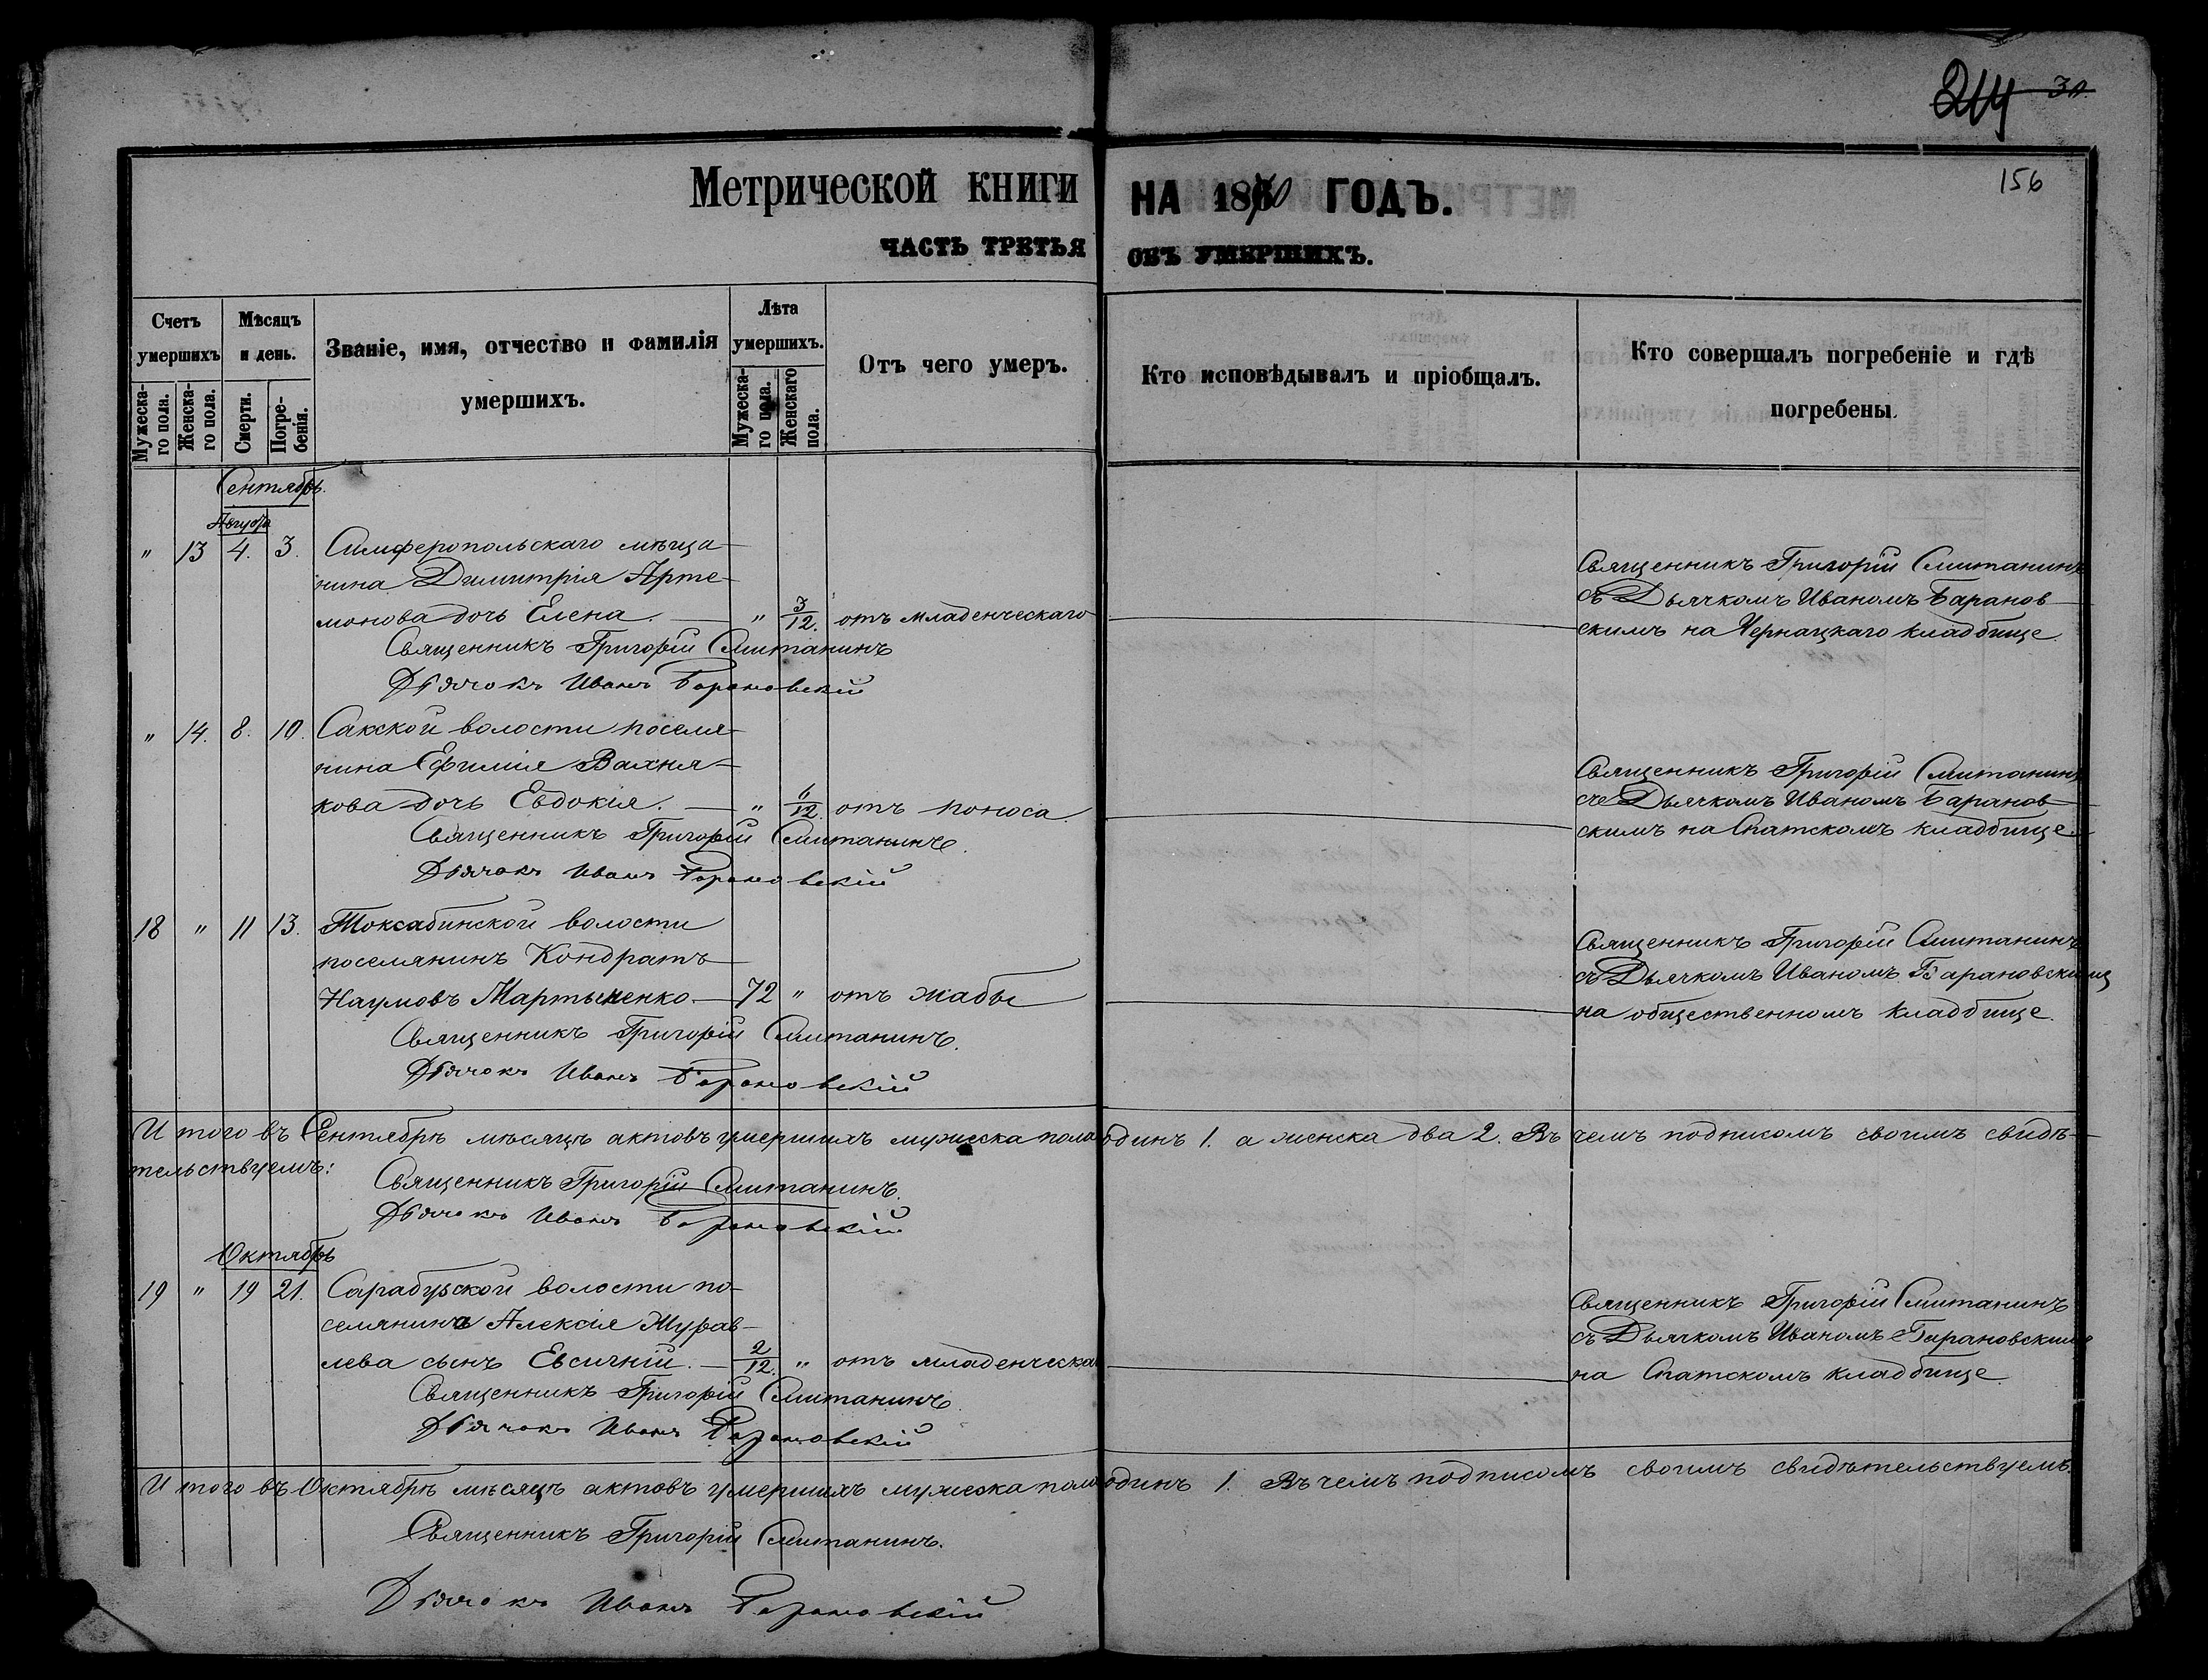 214 30.
156
Метрической книги на 1870 годъ.
часть третья объ умершихъ.
Счетъ умершихъ
Мужеска-го пола.
Женска-го пола.
Мѣсяцъ и день.
Смерти.
Погре-бенія.
Званіе, имя, отчество и фамилія умершихъ.
Лѣта умершихъ.
Мужеска-го пола.
Женскаго пола.
Отъ чего умеръ.
Кто исповѣдывалъ и пріобщалъ.
Кто совершалъ погребеніе и гдѣ погребены.
Сентябрь.
Августа
" 13 4. 3. Симферопольскаго мѣща-
нина Димитрія Арте-
монова дочь Елена. — " 3/12. отъ младенческаго
Священникъ Григорій Смитанинъ
Дьячокъ Иванъ Барановскій
Священникъ Григорій Смитанинъ
съ Дьячкомъ Иваномъ Баранов-
скимъ на Чернацкаго кладбище.
" 14. 8. 10. Сакской волости поселя-
нина Ефимія Вахня-
кова дочь Евдокія. — " 6/12. отъ поноса
Священникъ Григорій Смитанинъ.
Дьячокъ Иванъ Барановскій
Священникъ Григорій Смитанинъ
съ Дьячкомъ Иваномъ Баранов-
скимъ на Спатскомъ кладбище.
18 " 11 13. Токсабинской волости
поселянинъ Кондратъ
Наумовъ Мартыненко. — 72 " отъ жабы
Священникъ Григорій Смитанинъ.
Дьячокъ Иванъ Барановскій
Священникъ Григорій Смитанинъ
съ Дьячкомъ Иваномъ Барановскимъ
на общественномъ кладбище.
И того въ Сентябрѣ мѣсяцѣ актовъ умершихъ мужеска пола одинъ 1. а женска два 2. Въ чемъ подписомъ своимъ свидѣ-
тельствуемъ:
Священникъ Григорій Смитанинъ.
Дьячокъ Иванъ Барановскій
Октябрь
19 " 19 21. Сарабузской волости по-
селянина Алексія Журав-
лева сынъ Евсигній. — 2/12. " отъ младенческа
Священникъ Григорій Смитанинъ.
Дьячокъ Иванъ Барановскій
Священникъ Григорій Смитанинъ
съ Дьячкомъ Иваномъ Барановскимъ
на Спатскомъ кладбище.
И того въ Октябрѣ мѣсяцѣ актовъ умершихъ мужеска пола одинъ 1. Въ чемъ подписомъ своимъ свидѣтельствуемъ.
Священникъ Григорій Смитанинъ.
Дьячокъ Иванъ Барановскій